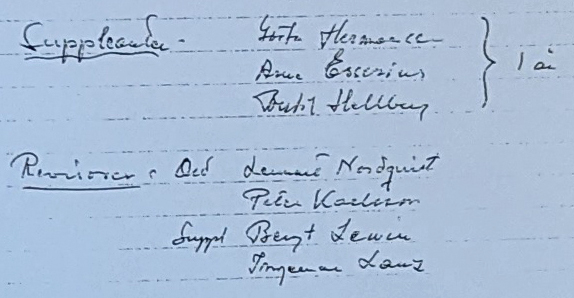 Suppleanter - Gösta Hermansen
Arne Esserius } 1 år
Bertil Hellberg
Revisorer: Ord Lennart Nordquist
Peter Karlsson
Suppl Bengt Lewin
Ingemar Lanz